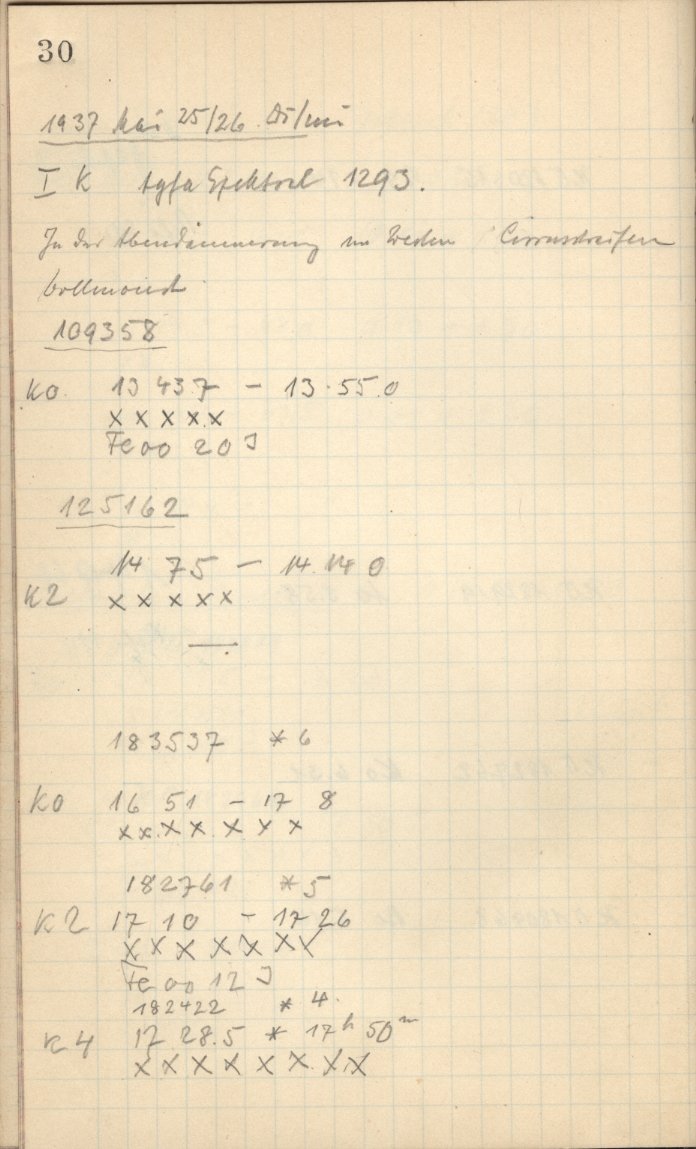 30
1937 Mai 25/26 Di/Mi
I K Agfa Spektral 1293.
In der Abenddämmerung im Westen Cirrusstreifen
Vollmond
109358
K0 13 43 7 – 13.55.0
x x x x x
Fe 00 20 J
125162
14 7 5 – 14.14 0
K2 x x x x x
—
183537 * 6
K0 16 51 – 17 8
x x x x x x x
182761 * 5
K2 17 10 – 17 26
x x x x x x x
Fe 00 12 J
182422 * 4.
K4 17 28.5 * 17h 50m
x x x x x x x x